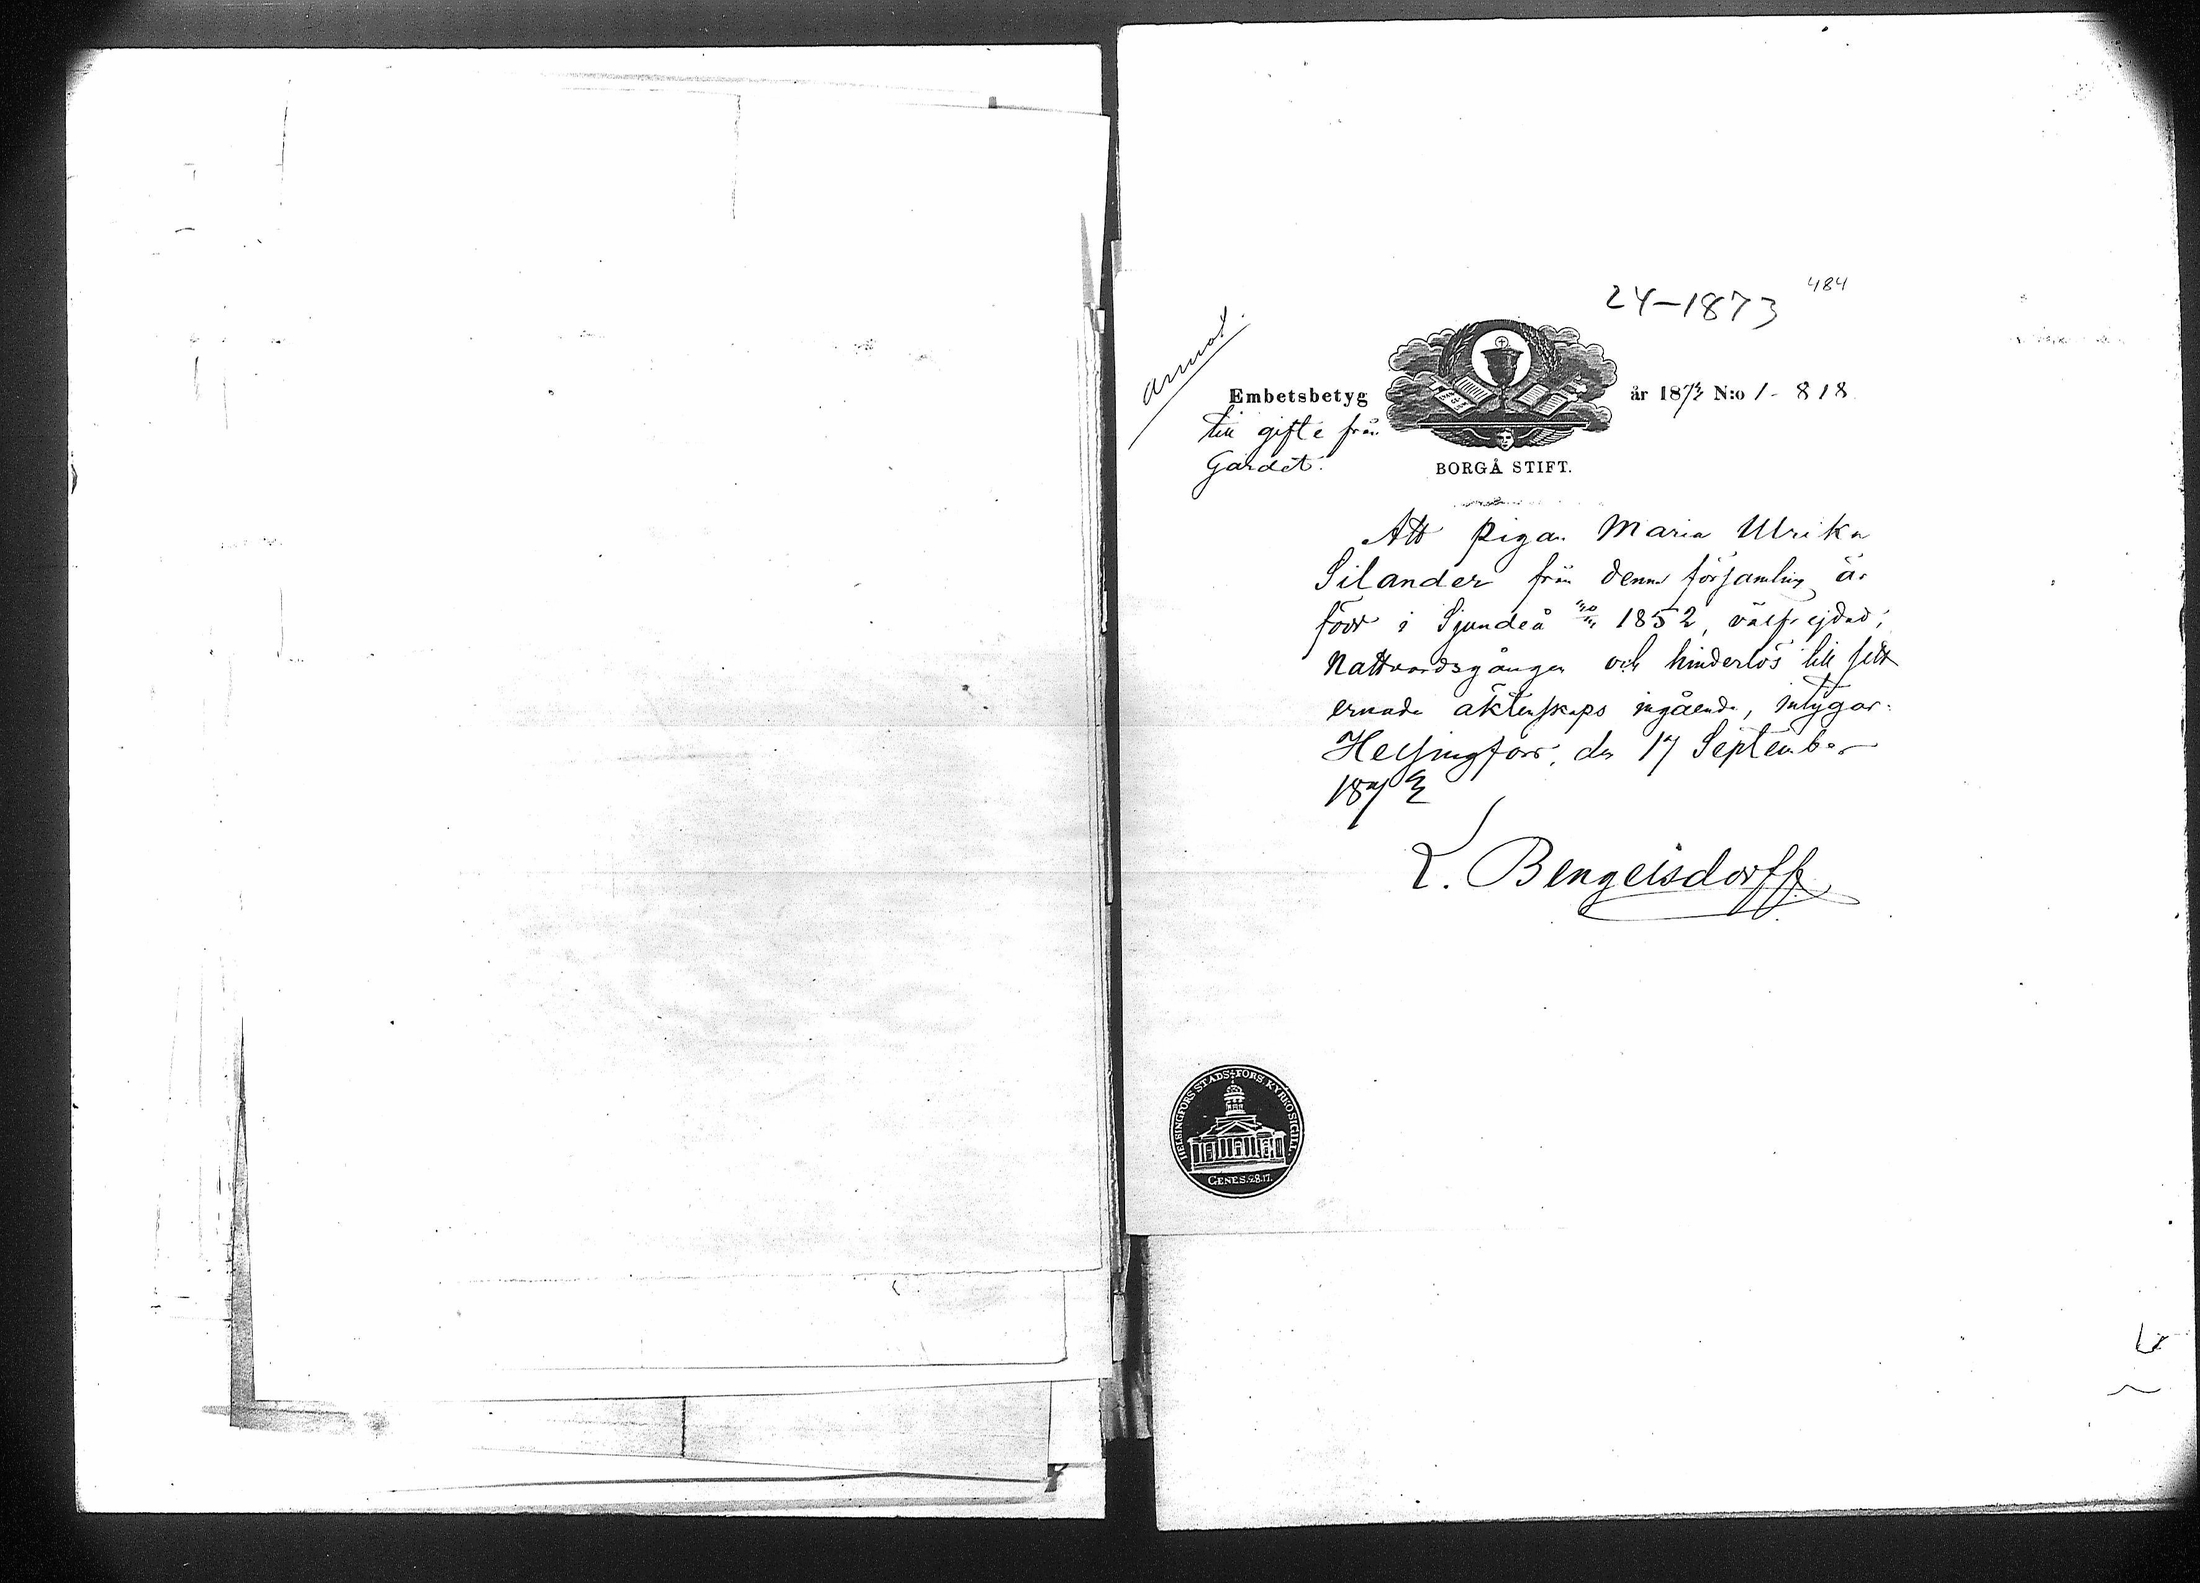 24-1873
484
annot.
Embetsbetyg
år 1873 N:o 1-818
till gifte från
Gardet.
BORGÅ STIFT.
Att pigan Maria Ulrika
Silander från denna församling är
född i Sjundeå 1852, välfrejdad,
Nattvardsgången och hinderlös till sitt
ernade äktenskaps ingående, intygar.
Helsingfors, den 17 September
1873
L. Bengelsdorff
HELSINGFORS STADS-FÖRS. KYRKOSIGILL.
GENES. 28.17.